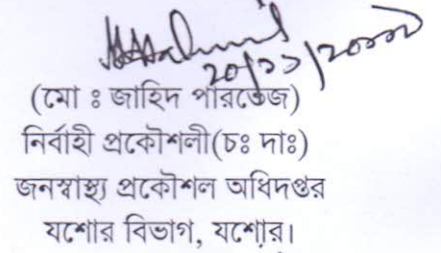 (মো ঃ জাহিদ পারভেজ)
নির্বাহী প্রকৌশলী(চঃ দাঃ)
জনস্বাস্থ্য প্রকৌশল অধিদপ্তর
যশোর বিভাগ, যশোর।